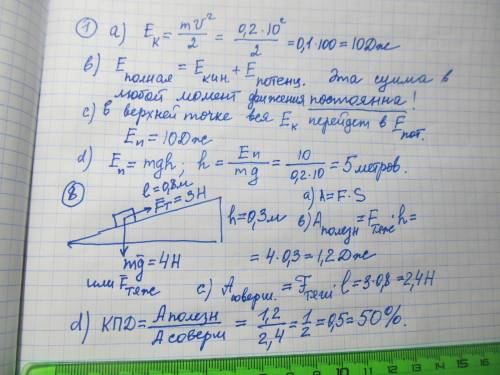 ① a) Eк = mV²/2 = 0,2·10²/2 = 0,1·100 = 10Дж
b) Eполная = Eкин + Eпотенц. Эта сумма в
любой момент движения постоянна!
c) в верхней точке вся Eк перейдет в Eпот.
Eп = 10Дж
d) Eп = mgh; h = Eп/mg = 10/0,2·10 = 5 метров.
⑧ l = 0,8м
Fт = 3Н
h = 0,3м
mg = 4Н
или Fтяж
a) A = F·S
b) Aполезн = Fтяж·h =
= 4·0,3 = 1,2Дж
c) Aсоверш. = Fтяги·l = 3·0,8 = 2,4Н
d) КПД = Aполезн/Aсоверш = 1,2/2,4 = 1/2 = 0,5 = 50%.